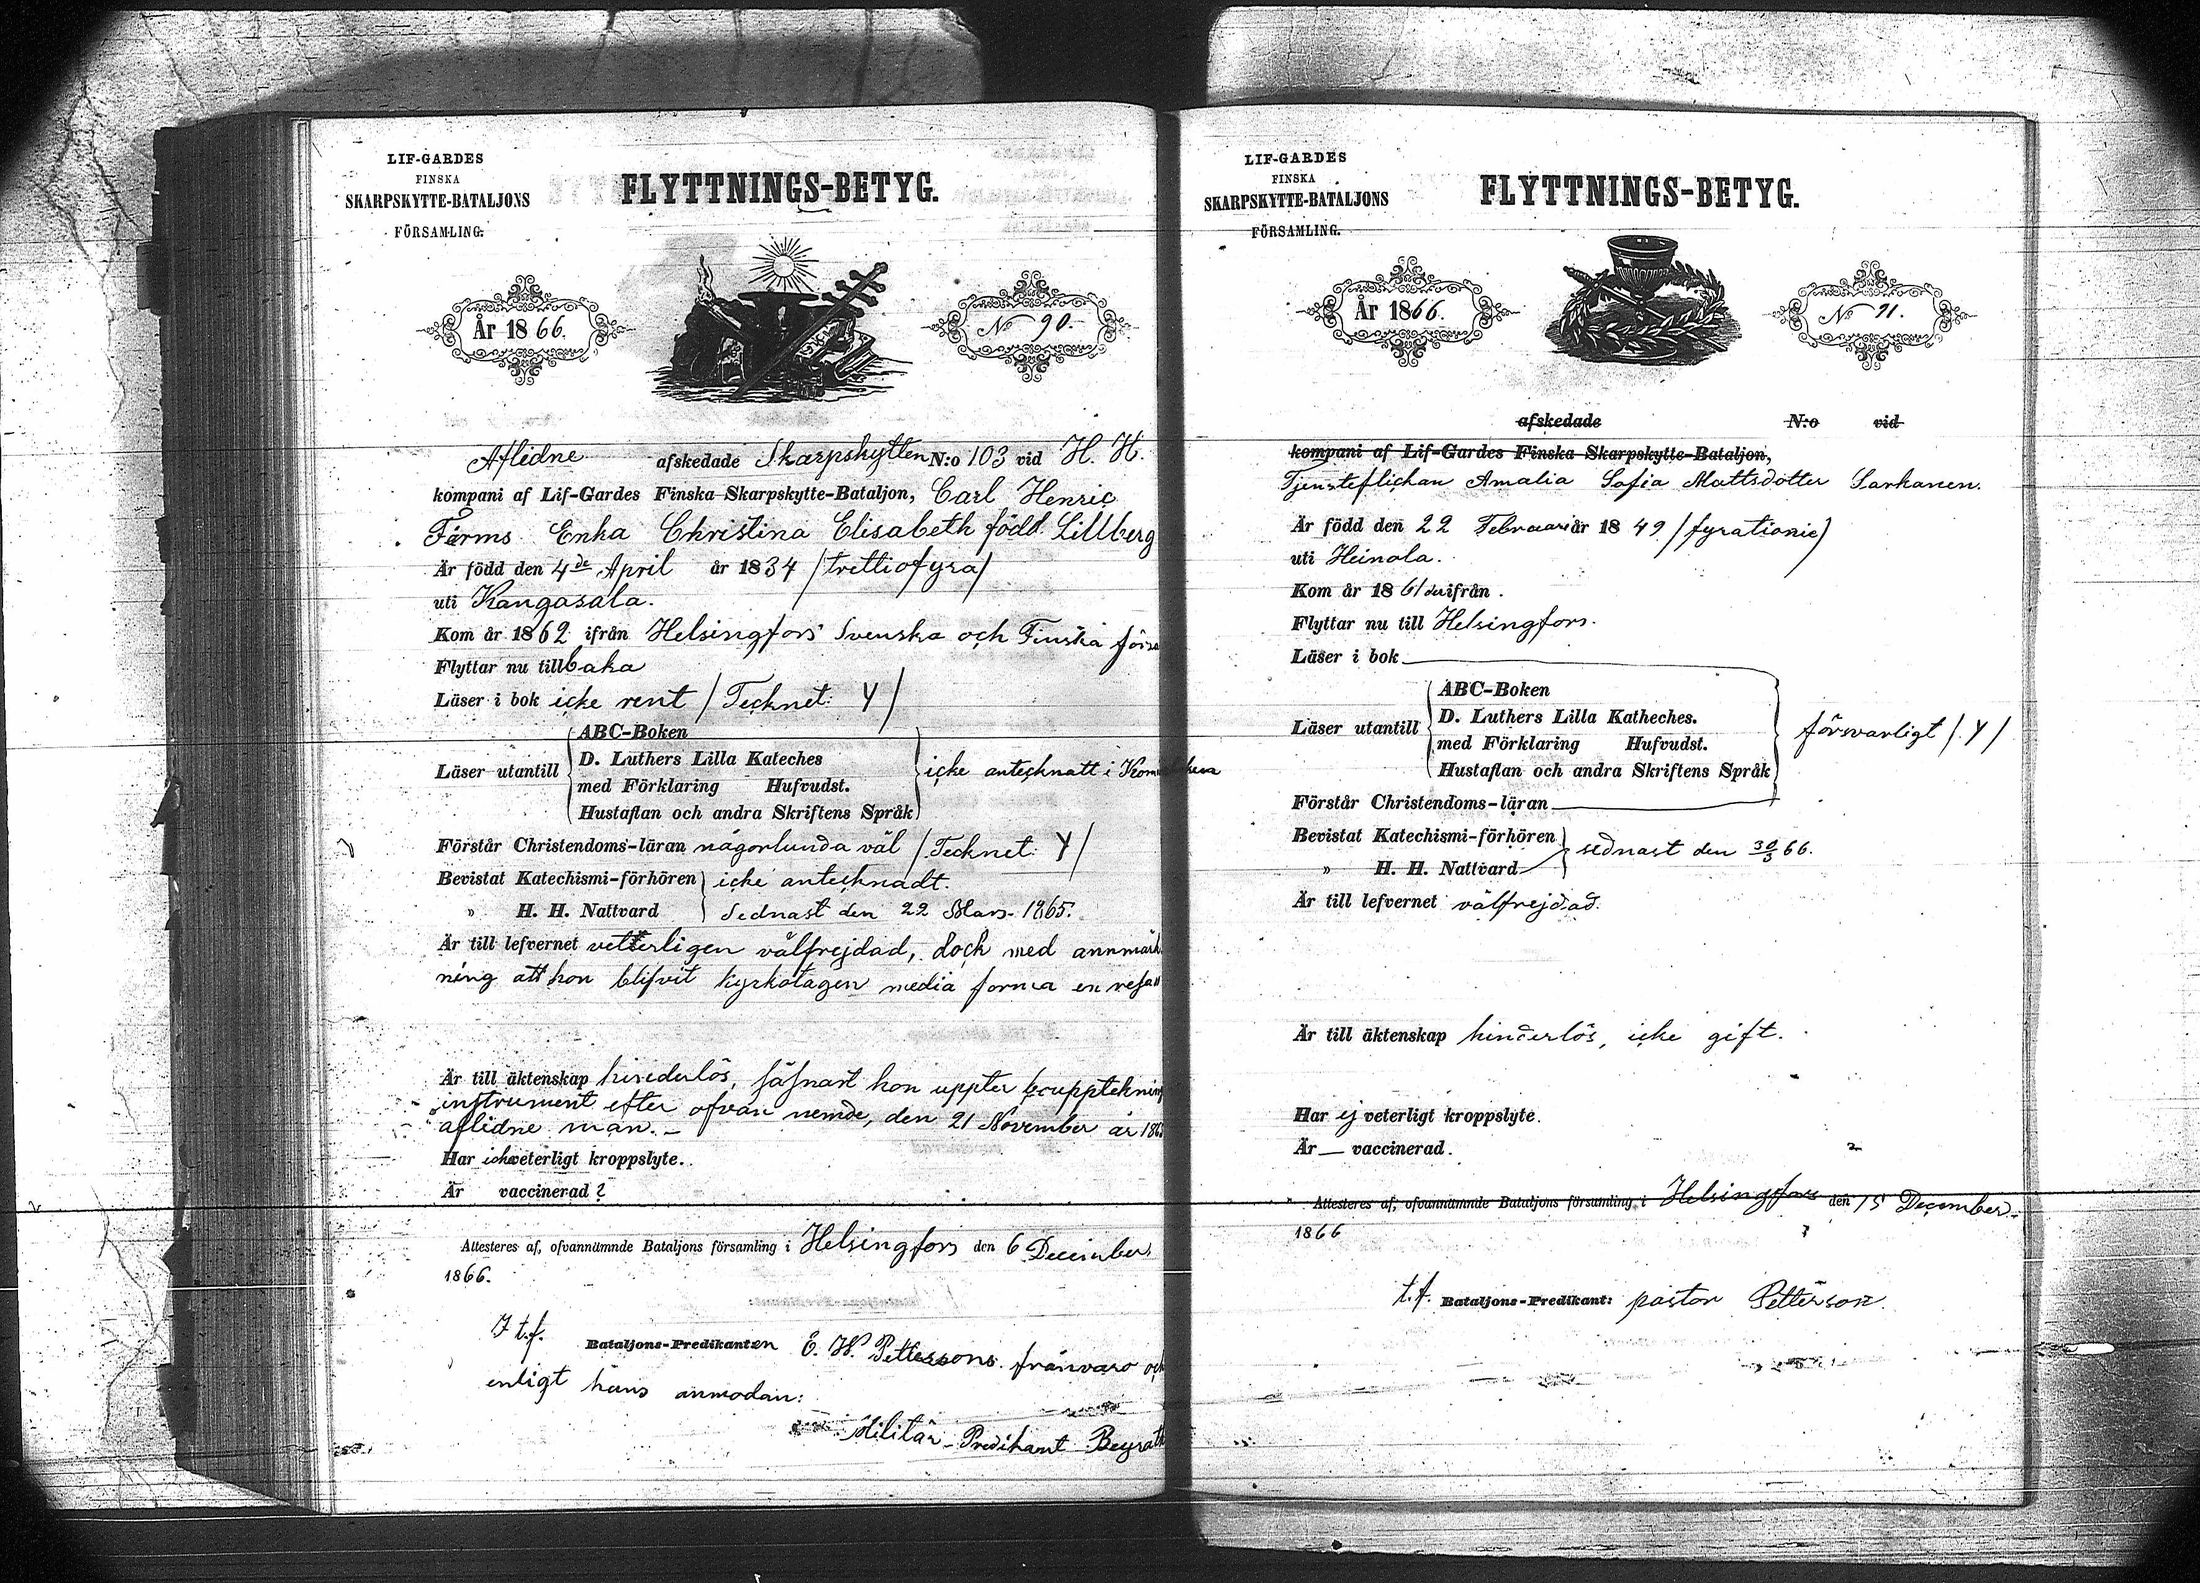 LIF-GARDES
FINSKA
SKARPSKYTTE-BATALJONS
FÖRSAMLING.
FLYTTNINGS-BETYG.
År 1866.
No 90.
Aflidne afskedade Skarpskytten N:o 103 vid H. H.
kompani af Lif-Gardes Finska Skarpskytte-Bataljon, Carl Henric
Färms Enka Christina Elisabeth född Lillberg
Är född den 4de April år 1834 /trettiofyra/
uti Kangasala.
Kom år 1862 ifrån Helsingfors Svenska och Finska förs
Flyttar nu tillbaka
Läser i bok icke rent / Tecknet: Y /
Läser utantill
ABC-Boken
D. Luthers Lilla Kateches
med Förklaring Hufvudst.
Hustaflan och andra Skriftens Språk
icke antecknatt i
Förstår Christendoms-läran någorlunda väl / Tecknet: Y /
Bevistat Katechismi-förhören icke antecknadt.
" H. H. Nattvard Sednast den 22 Mars 1865.
Är till lefvernet vetterligen välfrejdad, dock med anmärk
ning att hon blifvit kyrkotagen media forma en resa
Är till äktenskap hinderlös, såsnart hon uppter boupptekning
instrument efter ofvan nemde, den 21 November år 186
aflidne man.
Har icke veterligt kroppslyte.
Är vaccinerad?
Attesteres af, ofvannämnde Bataljons församling i Helsingfors den 6 December
1866.
I t.f. Bataljons-Predikanten E. W. Pettersons frånvaro och
enligt hans anmodan:
Militär-Predikant Beyrath
LIF-GARDES
FINSKA
SKARPSKYTTE-BATALJONS
FÖRSAMLING.
FLYTTNINGS-BETYG.
År 1866.
No 91.
afskedade N:o vid
kompani af Lif-Gardes Finska Skarpskytte-Bataljon,
Tjensteflickan Amalia Sofia Mattsdotter Sarkanen.
Är född den 22 Februari år 1849 /fyrationie/
uti Heinola.
Kom år 1861 ifrån .
Flyttar nu till Helsingfors.
Läser i bok
Läser utantill
ABC-Boken
D. Luthers Lilla Katheches.
med Förklaring Hufvudst.
Hustaflan och andra Skriftens Språk
försvarligt / Y /
Förstår Christendoms-läran
Bevistat Katechismi-förhören
" H. H. Nattvard
sednast den 30/3 66.
Är till lefvernet välfrejdad.
Är till äktenskap hinderlös, icke gift.
Har ej veterligt kroppslyte.
Är — vaccinerad.
Attesteres af, ofvannämnde Bataljons församling i Helsingfors den 15 December
1866
t.f. Bataljons-Predikant: pastor Petterson.